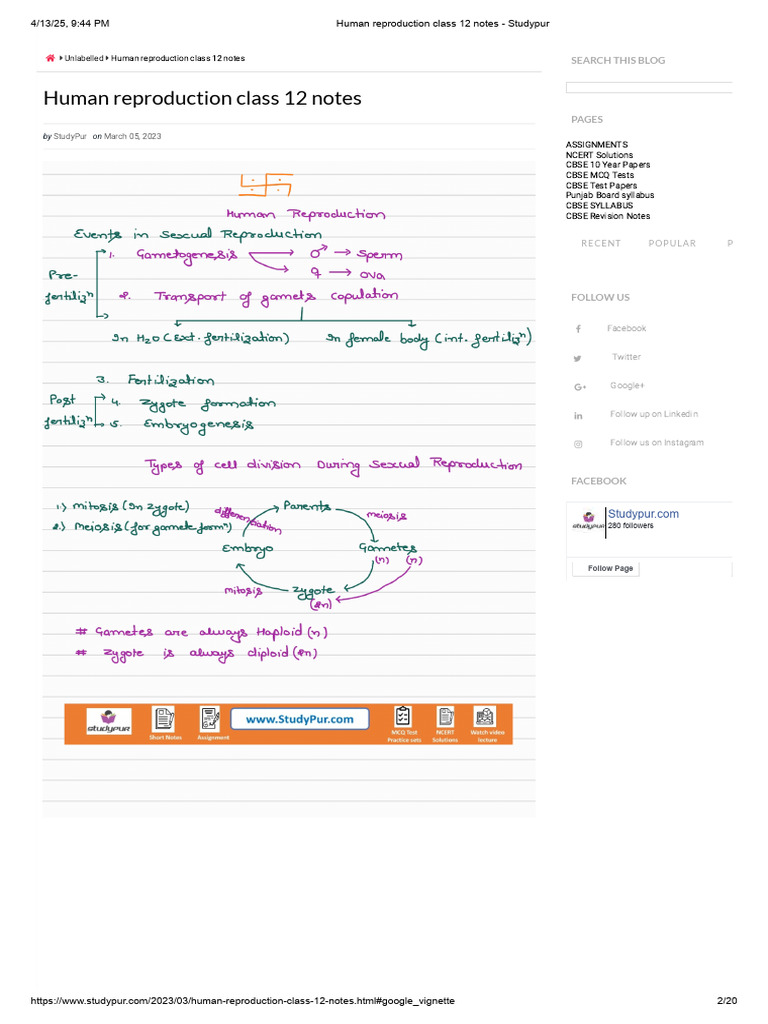 4/13/25, 9:44 PM
Human reproduction class 12 notes - Studypur
Unlabelled Human reproduction class 12 notes
Human reproduction class 12 notes
by StudyPur on March 05, 2023
Human Reproduction
Events in Sexual Reproduction
Pre-fertilizⁿ
1. Gametogenesis → ♂ → Sperm
♀ → ova
2. Transport of gamets copulation
In H2O (Ext. fertilization)
In female body (int. fertilizⁿ)
3. Fertilization
Post fertilizⁿ
4. Zygote formation
5. Embryogenesis
Types of cell division During Sexual Reproduction
1.) mitosis (In zygote)
2.) Meiosis (for gamete formⁿ)
differentiation
Parents
meiosis
Embryo
Gametes
(n) (n)
mitosis
Zygote
(2n)
# Gametes are always Haploid (n)
# Zygote is always diploid (2n)
studyPUR
Short Notes
Assignment
www.StudyPur.com
MCQ Test
Practice sets
NCERT
Solutions
Watch video
lecture
SEARCH THIS BLOG
PAGES
ASSIGNMENTS
NCERT Solutions
CBSE 10 Year Papers
CBSE MCQ Tests
CBSE Test Papers
Punjab Board syllabus
CBSE SYLLABUS
CBSE Revision Notes
RECENT POPULAR P
FOLLOW US
Facebook
Twitter
Google+
Follow up on Linkedin
Follow us on Instagram
FACEBOOK
studyPUR
Studypur.com
280 followers
Follow Page
https://www.studypur.com/2023/03/human-reproduction-class-12-notes.html#google_vignette
2/20